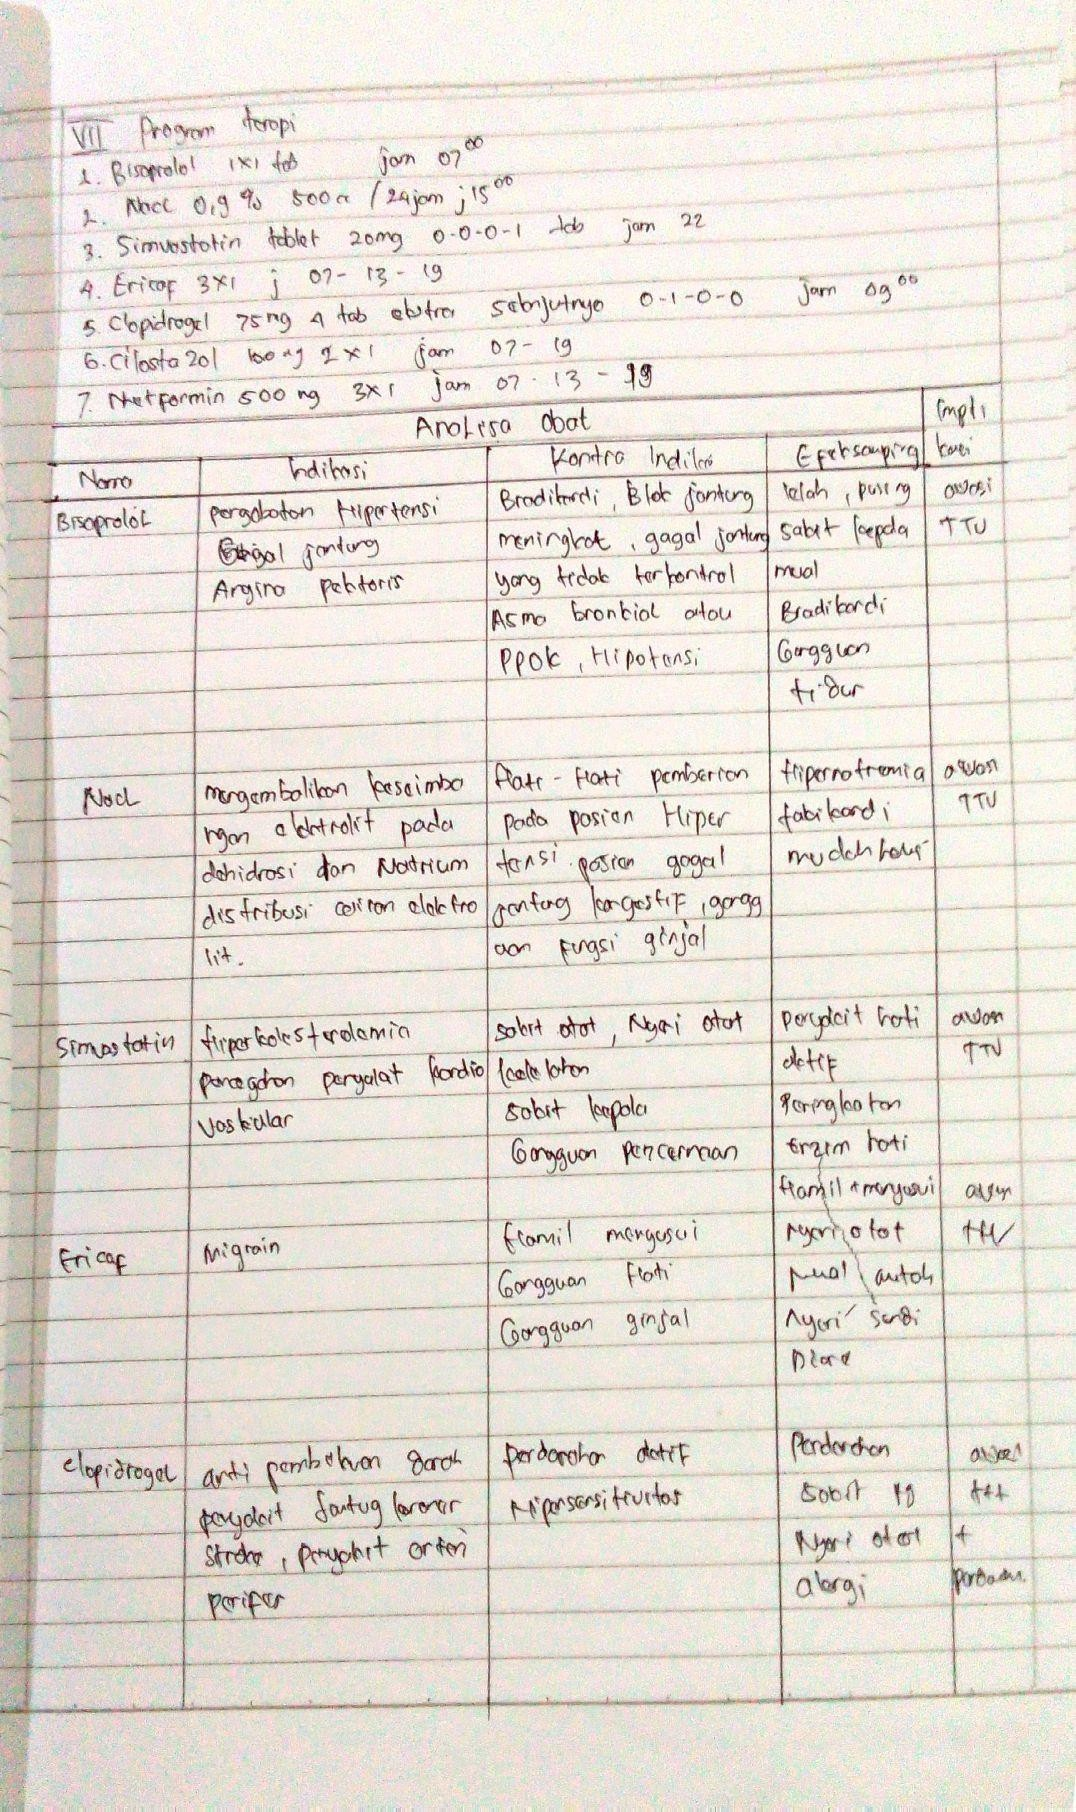 VII Program terapi
1. Bisoprolol 1x1 tab jam 07⁰⁰
2. Nacl 0,9 % 500 cc / 24 jam j 15⁰⁰
3. Simvastatin tablet 20mg 0-0-0-1 tab jam 22
4. Ericaf 3x1 j 07 - 13 - 19
5. Clopidrogel 75 mg 4 tab ekstra selanjutnya 0-1-0-0 jam 09⁰⁰
6. Cilostazol 100 mg 2x1 jam 07 - 19
7. Metformin 500 mg 3x1 jam 07 - 13 - 19
Analisa Obat
Nama
Indikasi
Kontra Indikasi
Efek samping
Impli
kasi
Bisoprolol
pengobatan Hipertensi
Gagal jantung
Angina pektoris
Bradikardi, Blok jantung
meningkat, gagal jantung
yang tidak terkontrol
Asma bronkial atau
PPOK, Hipotensi
lelah, pusing
sakit kepala
mual
Bradikardi
Gangguan
tidur
awasi
TTV
Nacl
mengembalikan keseimba
ngan elektrolit pada
dehidrasi dan Natrium
distribusi cairan elektro
lit.
Hati - Hati pemberian
pada pasien Hiper
tensi pasien gagal
jantung kongestif, gangg
uan fungsi ginjal
Hipernatremia
takikardi
mudah haus
awasi
TTV
Simvastatin
Hiperkolesterolamia
pencegahan penyakit kardio
vaskular
sakit otot, Nyeri otot
kelelahan
sakit kepala
Gangguan pencernaan
penyakit hati
aktif
Peningkatan
Enzim hati
Hamil + menyusui
awasi
TTV
Ericaf
Migrain
Hamil menyusui
Gangguan Hati
Gangguan ginjal
Nyeri otot
mual muntah
Nyeri sendi
Diare
awasi
TTV
Clopidrogel
anti pembekuan darah
penyakit jantug koroner
stroke, penyakit arteri
perifer
Perdarahan aktif
Hipersensitivitas
Perdarahan
sakit
Nyeri otot
alergi
awasi
+